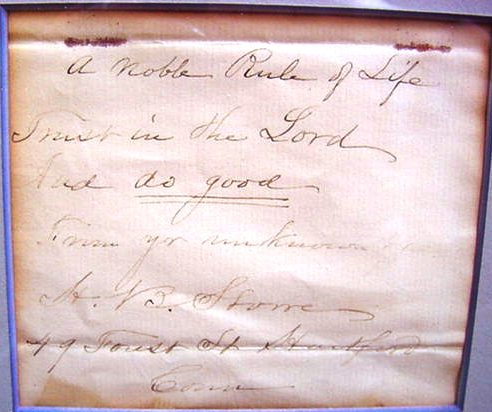 A Noble Rule of Life
Trust in the Lord
And do good
From yr unknown
H. B. Stowe
49 Forest St Hartford
Conn